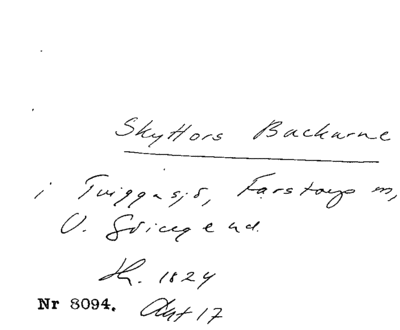 Skyttors Backarne
i Tviggasjö, Farstorps sn,
V. Göingehd.
Lh. 1824
Nr 8094. Akt 17